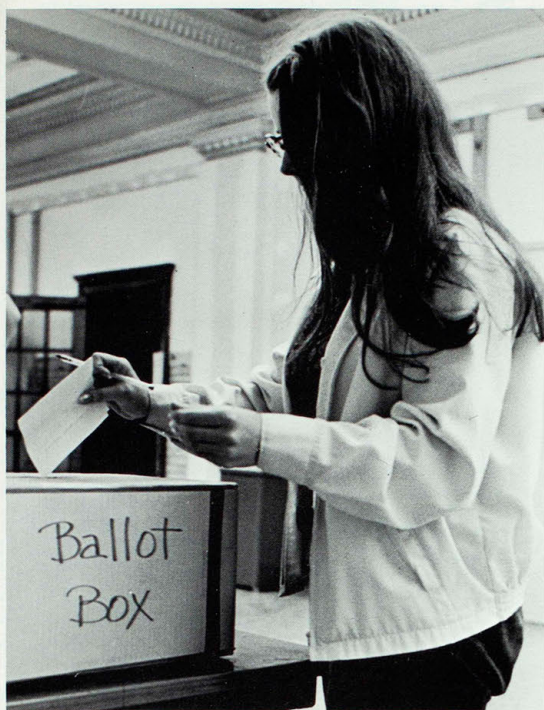 Ballot
Box